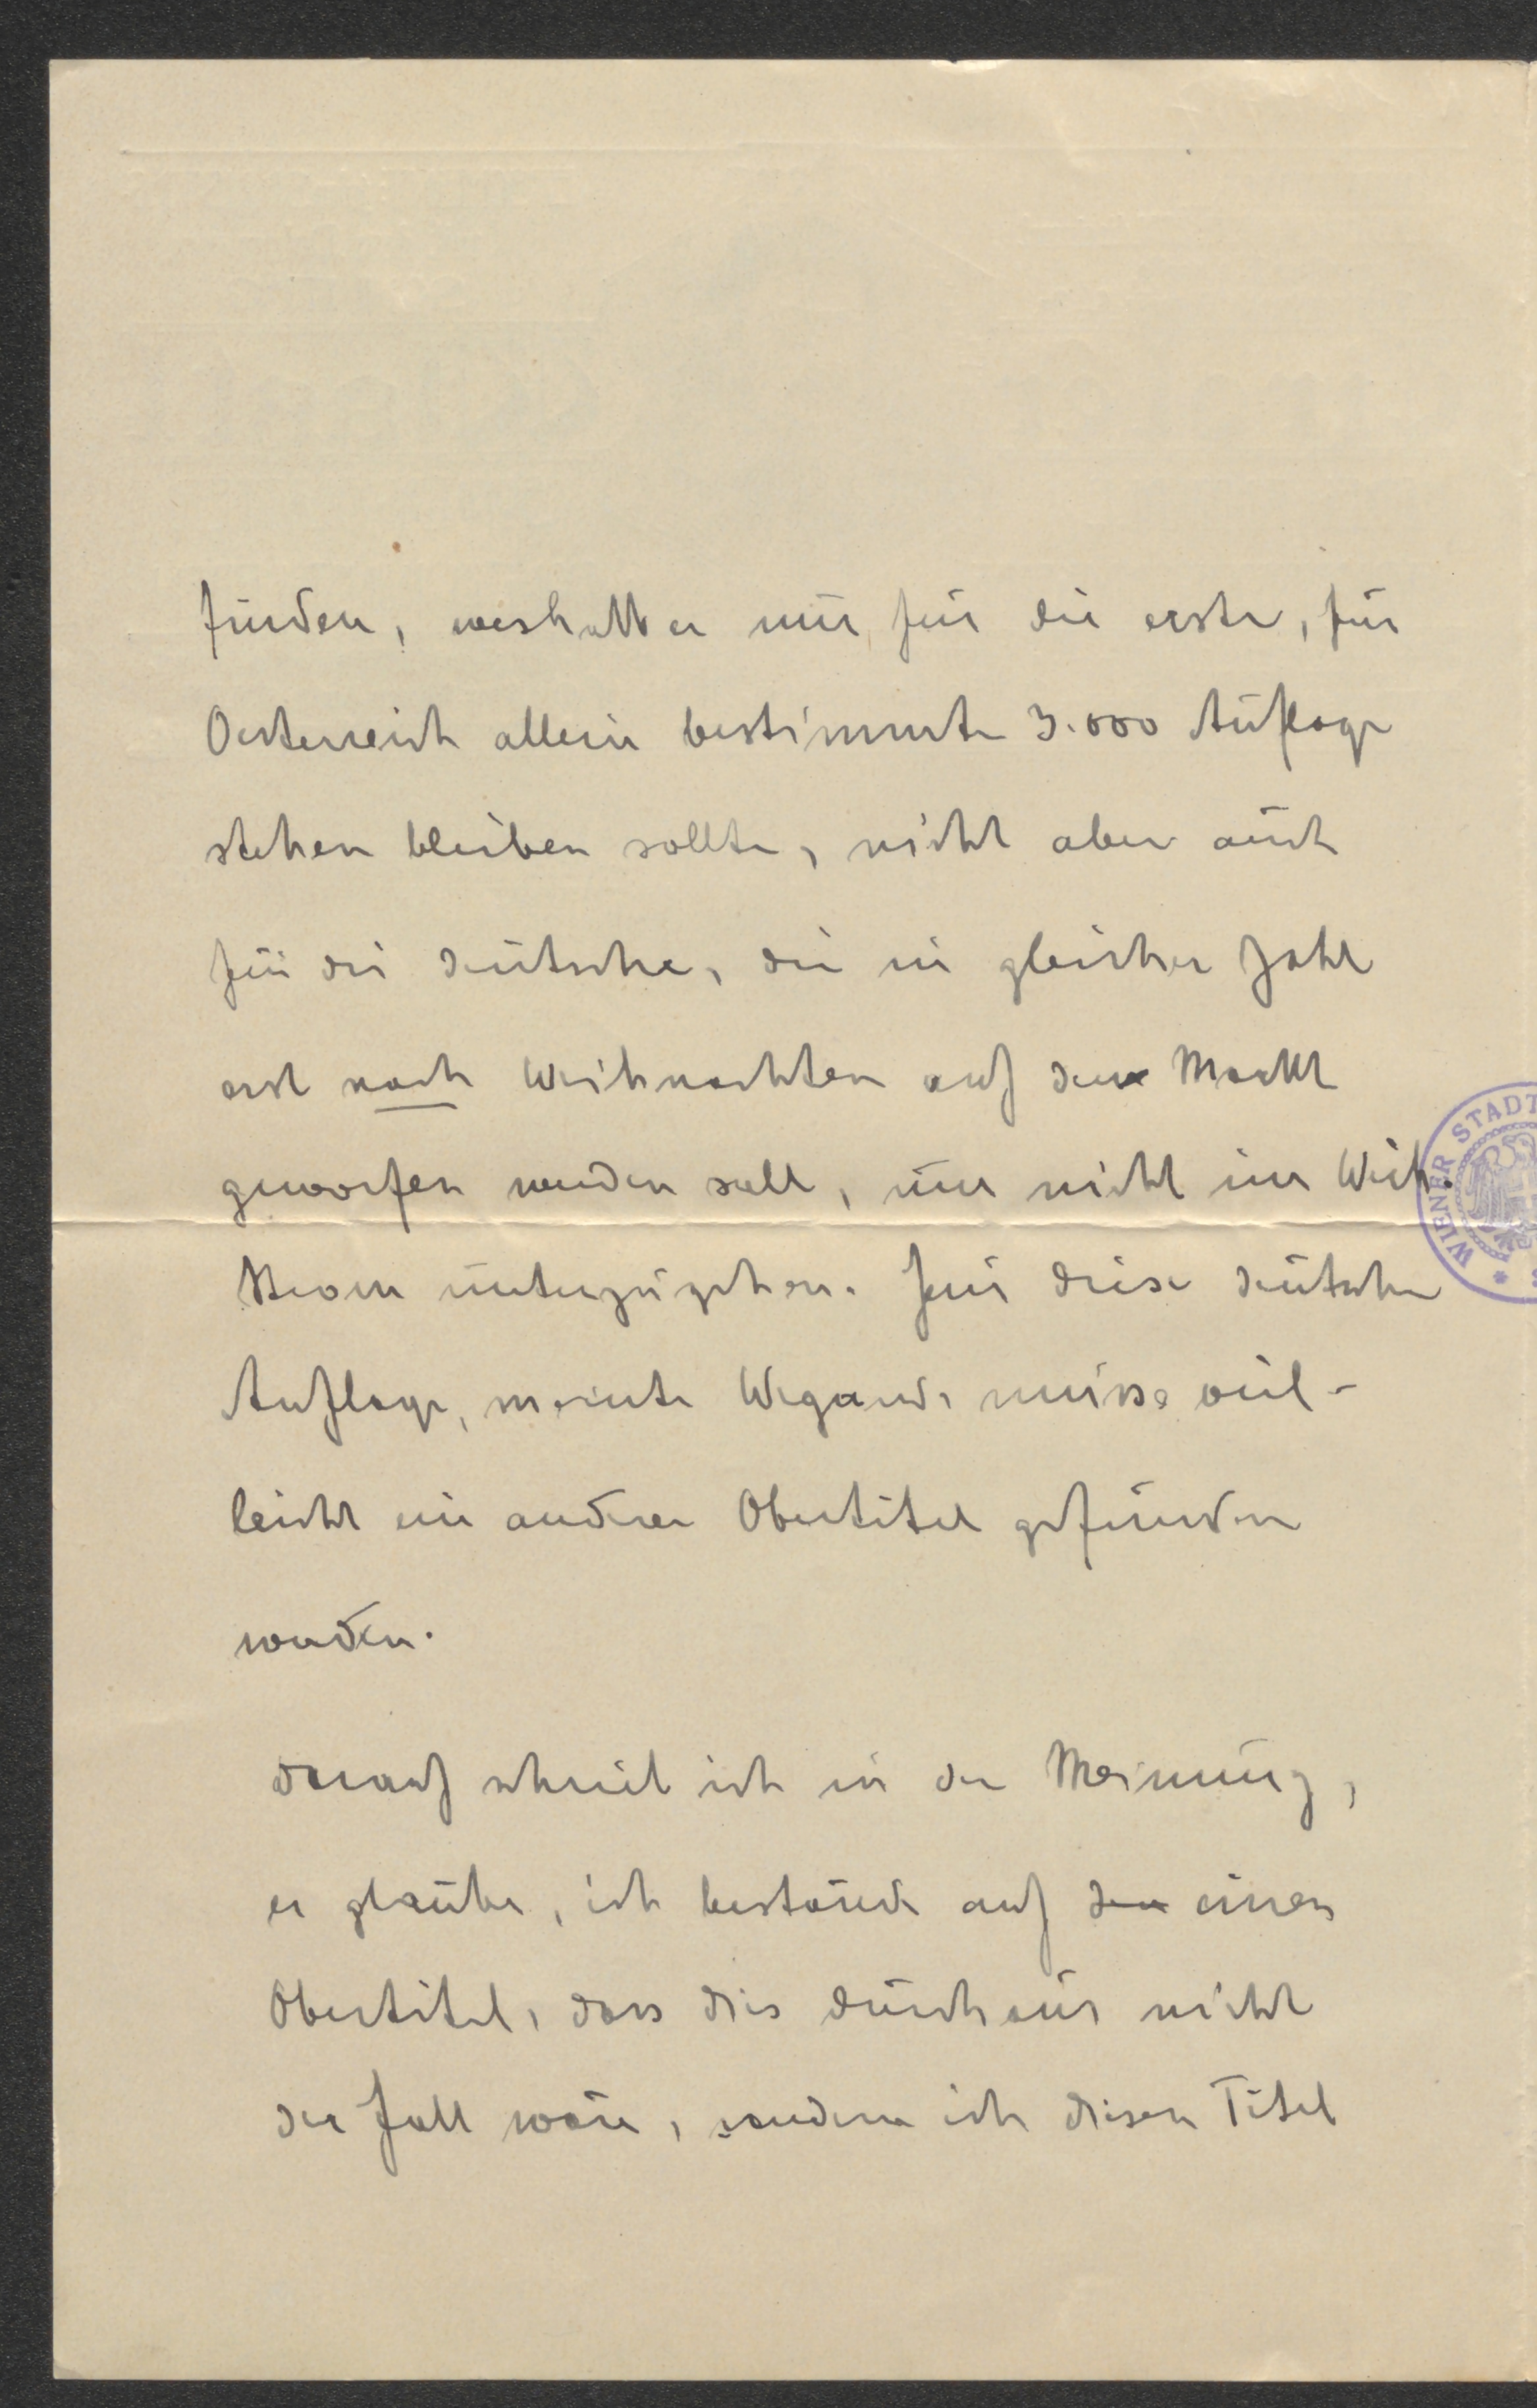 finden, weshalb er nur für die erste, für
Oesterreich allein bestimmte 3.000 Auflage
stehen bleiben sollte, nicht aber auch
für die deutsche, die in gleicher Zahl
erst nach Weihnachten auf den Markt
geworfen werden soll, um nicht im Weih.
Strom unterzugehen. Für diese deutsche
Auflage, meinte Wegand, müsse viel-
leicht ein anderer Obertitel gefunden
werden.
Darauf schrieb ich in der Meinung,
er glaube, ich bestände auf den einen
Obertitel, dass dies durchaus nicht
der Fall wäre, sondern ich diesen Titel
WIENER STADT